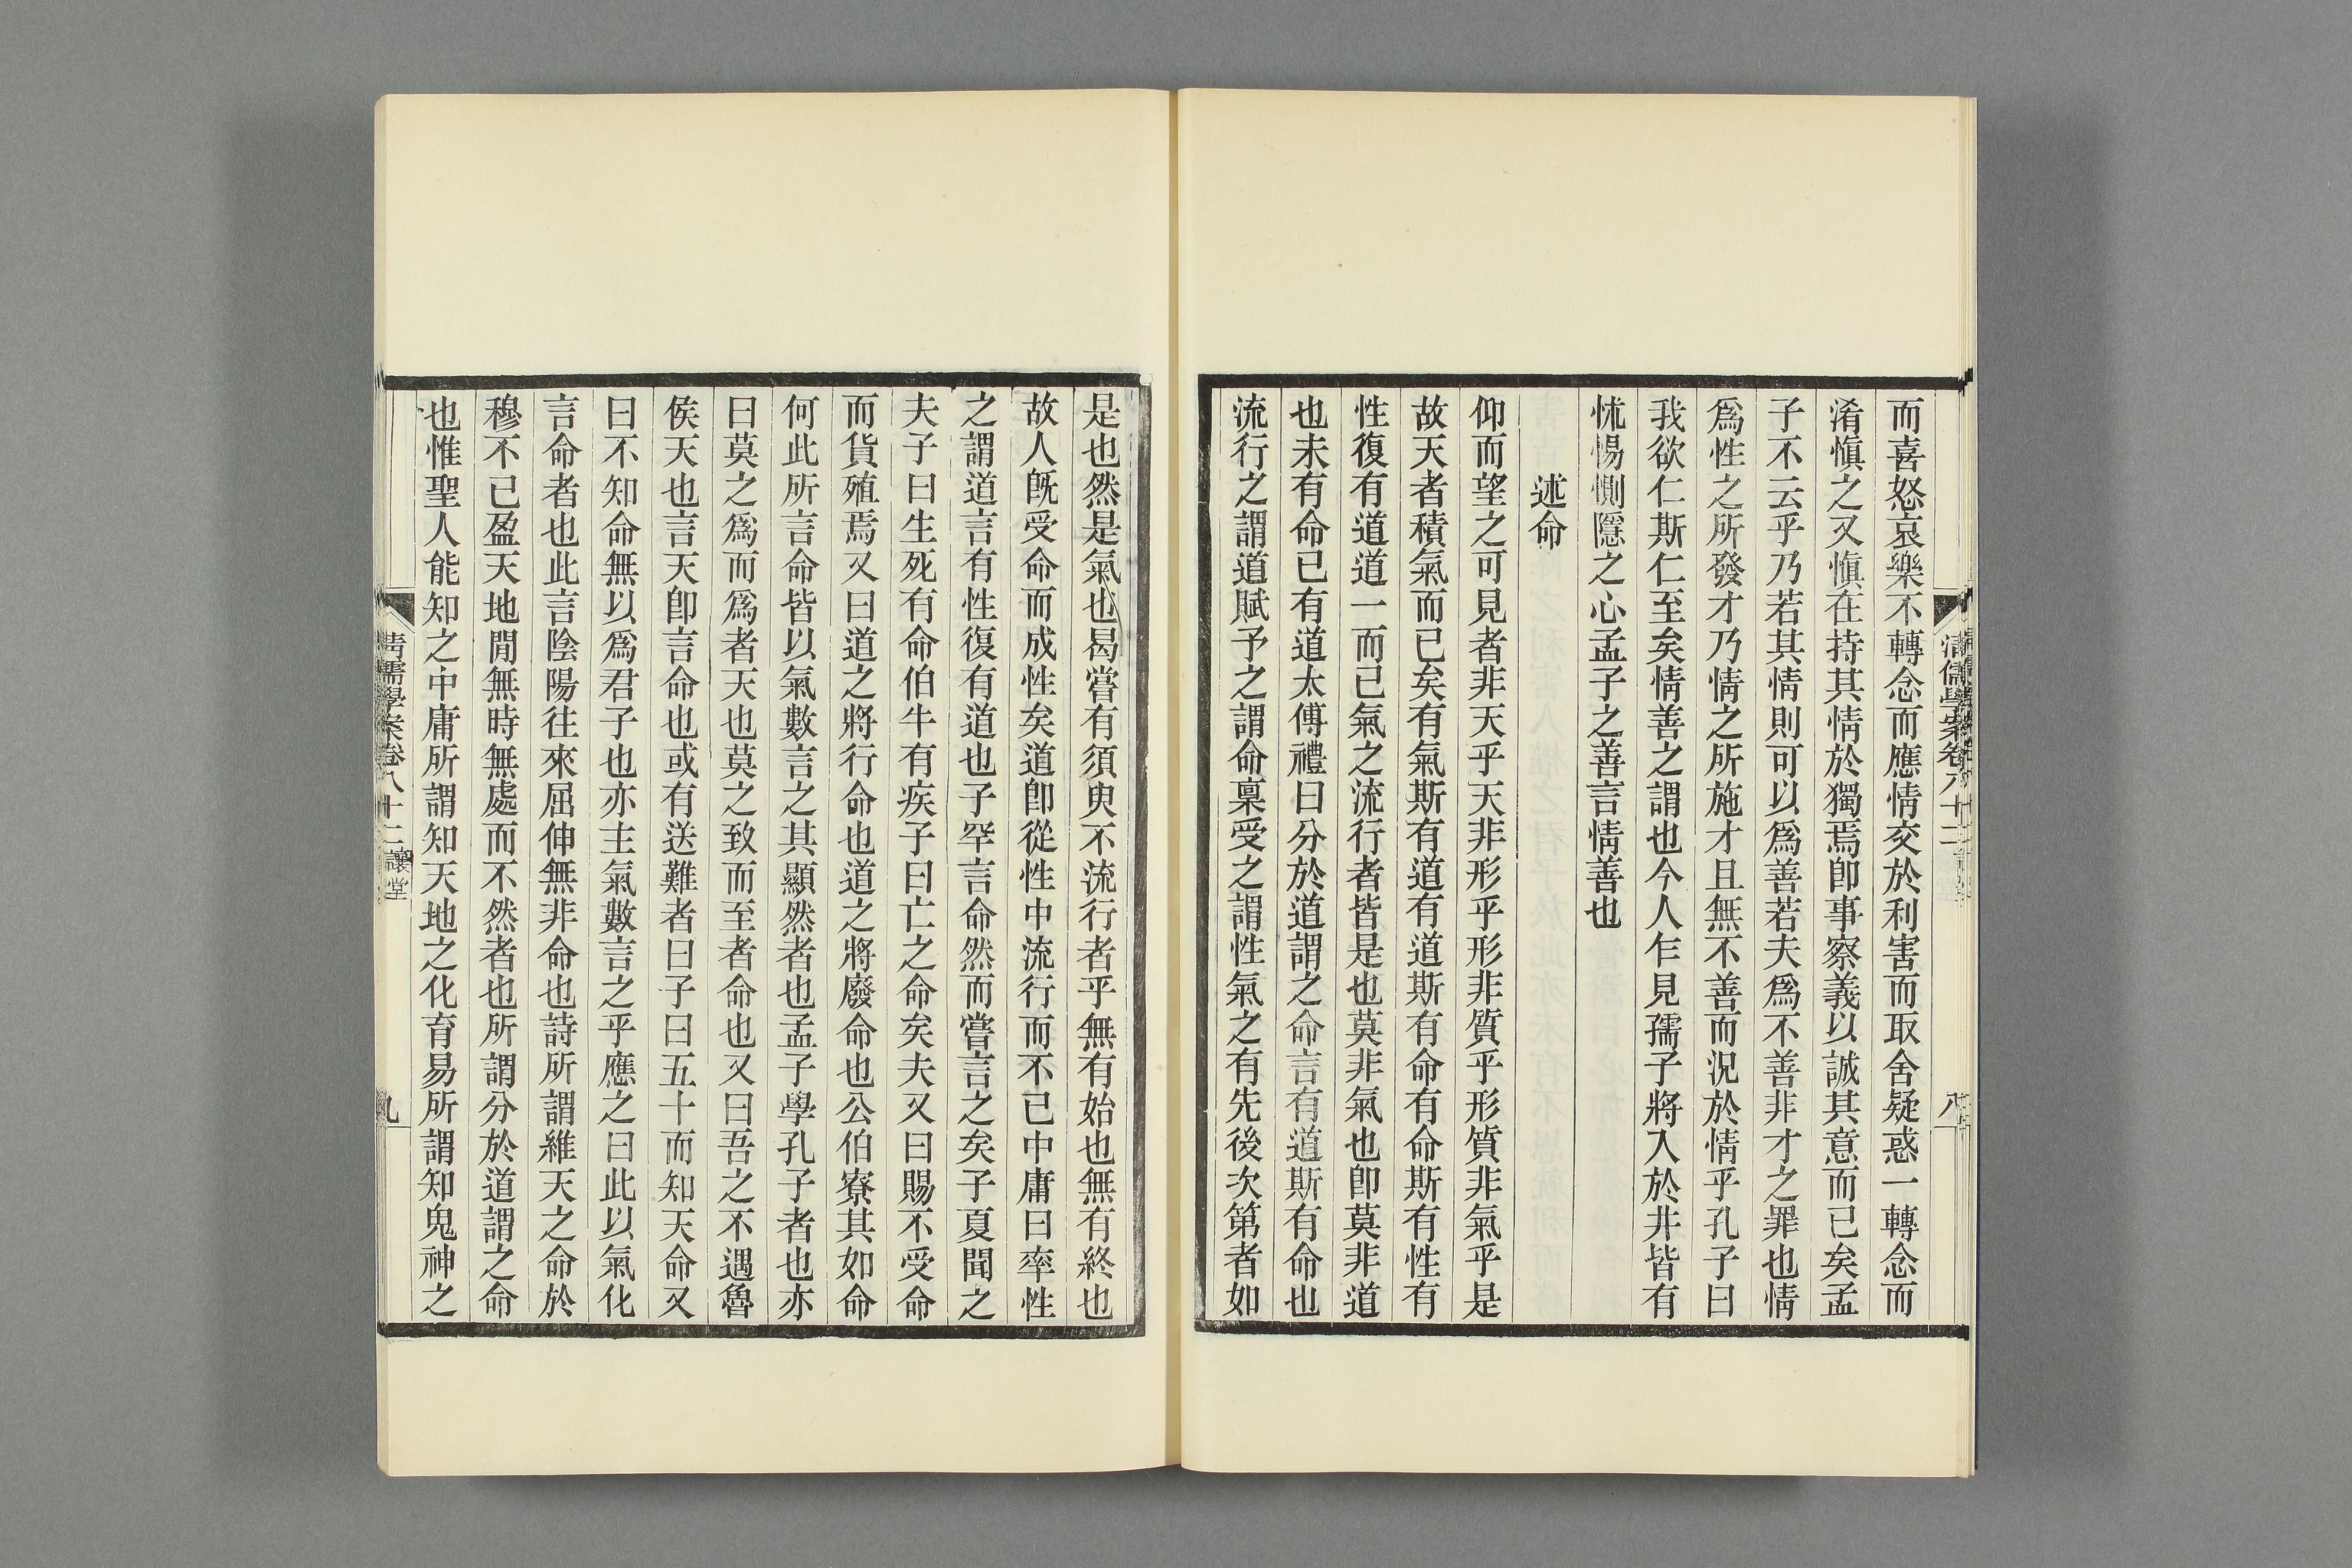 清儒學案卷八十二
八
而喜怒哀樂不轉念而應情交於利害而取舍疑惑一轉念而
淆愼之又愼在持其情於獨焉卽事察義以誠其意而已矣孟
子不云乎乃若其情則可以爲善若夫爲不善非才之罪也情
爲性之所發才乃情之所施才且無不善而況於情乎孔子曰
我欲仁斯仁至矣情善之謂也今人乍見孺子將入於井皆有
怵惕惻隱之心孟子之善言情善也
述命
仰而望之可見者非天乎天非形乎形非質乎形質非氣乎是
故天者積氣而已矣有氣斯有道有道斯有命有命斯有性有
性復有道道一而已氣之流行者皆是也莫非氣也卽莫非道
也未有命已有道太傅禮曰分於道謂之命言有道斯有命也
流行之謂道賦予之謂命稟受之謂性氣之有先後次第者如
是也然是氣也曷嘗有須臾不流行者乎無有始也無有終也
故人旣受命而成性矣道卽從性中流行而不已中庸曰率性
之謂道言有性復有道也子罕言命然而嘗言之矣子夏聞之
夫子曰生死有命伯牛有疾子曰亡之命矣夫又曰賜不受命
而貨殖焉又曰道之將行命也道之將廢命也公伯寮其如命
何此所言命皆以氣數言之其顯然者也孟子學孔子者也亦
曰莫之爲而爲者天也莫之致而至者命也又曰吾之不遇魯
侯天也言天卽言命也或有送難者曰子曰五十而知天命又
曰不知命無以爲君子也亦主氣數言之乎應之曰此以氣化
言命者也此言陰陽往來屈伸無非命也詩所謂維天之命於
穆不已盈天地閒無時無處而不然者也所謂分於道謂之命
也惟聖人能知之中庸所謂知天地之化育易所謂知鬼神之
清儒學案卷八十二
讓堂
九